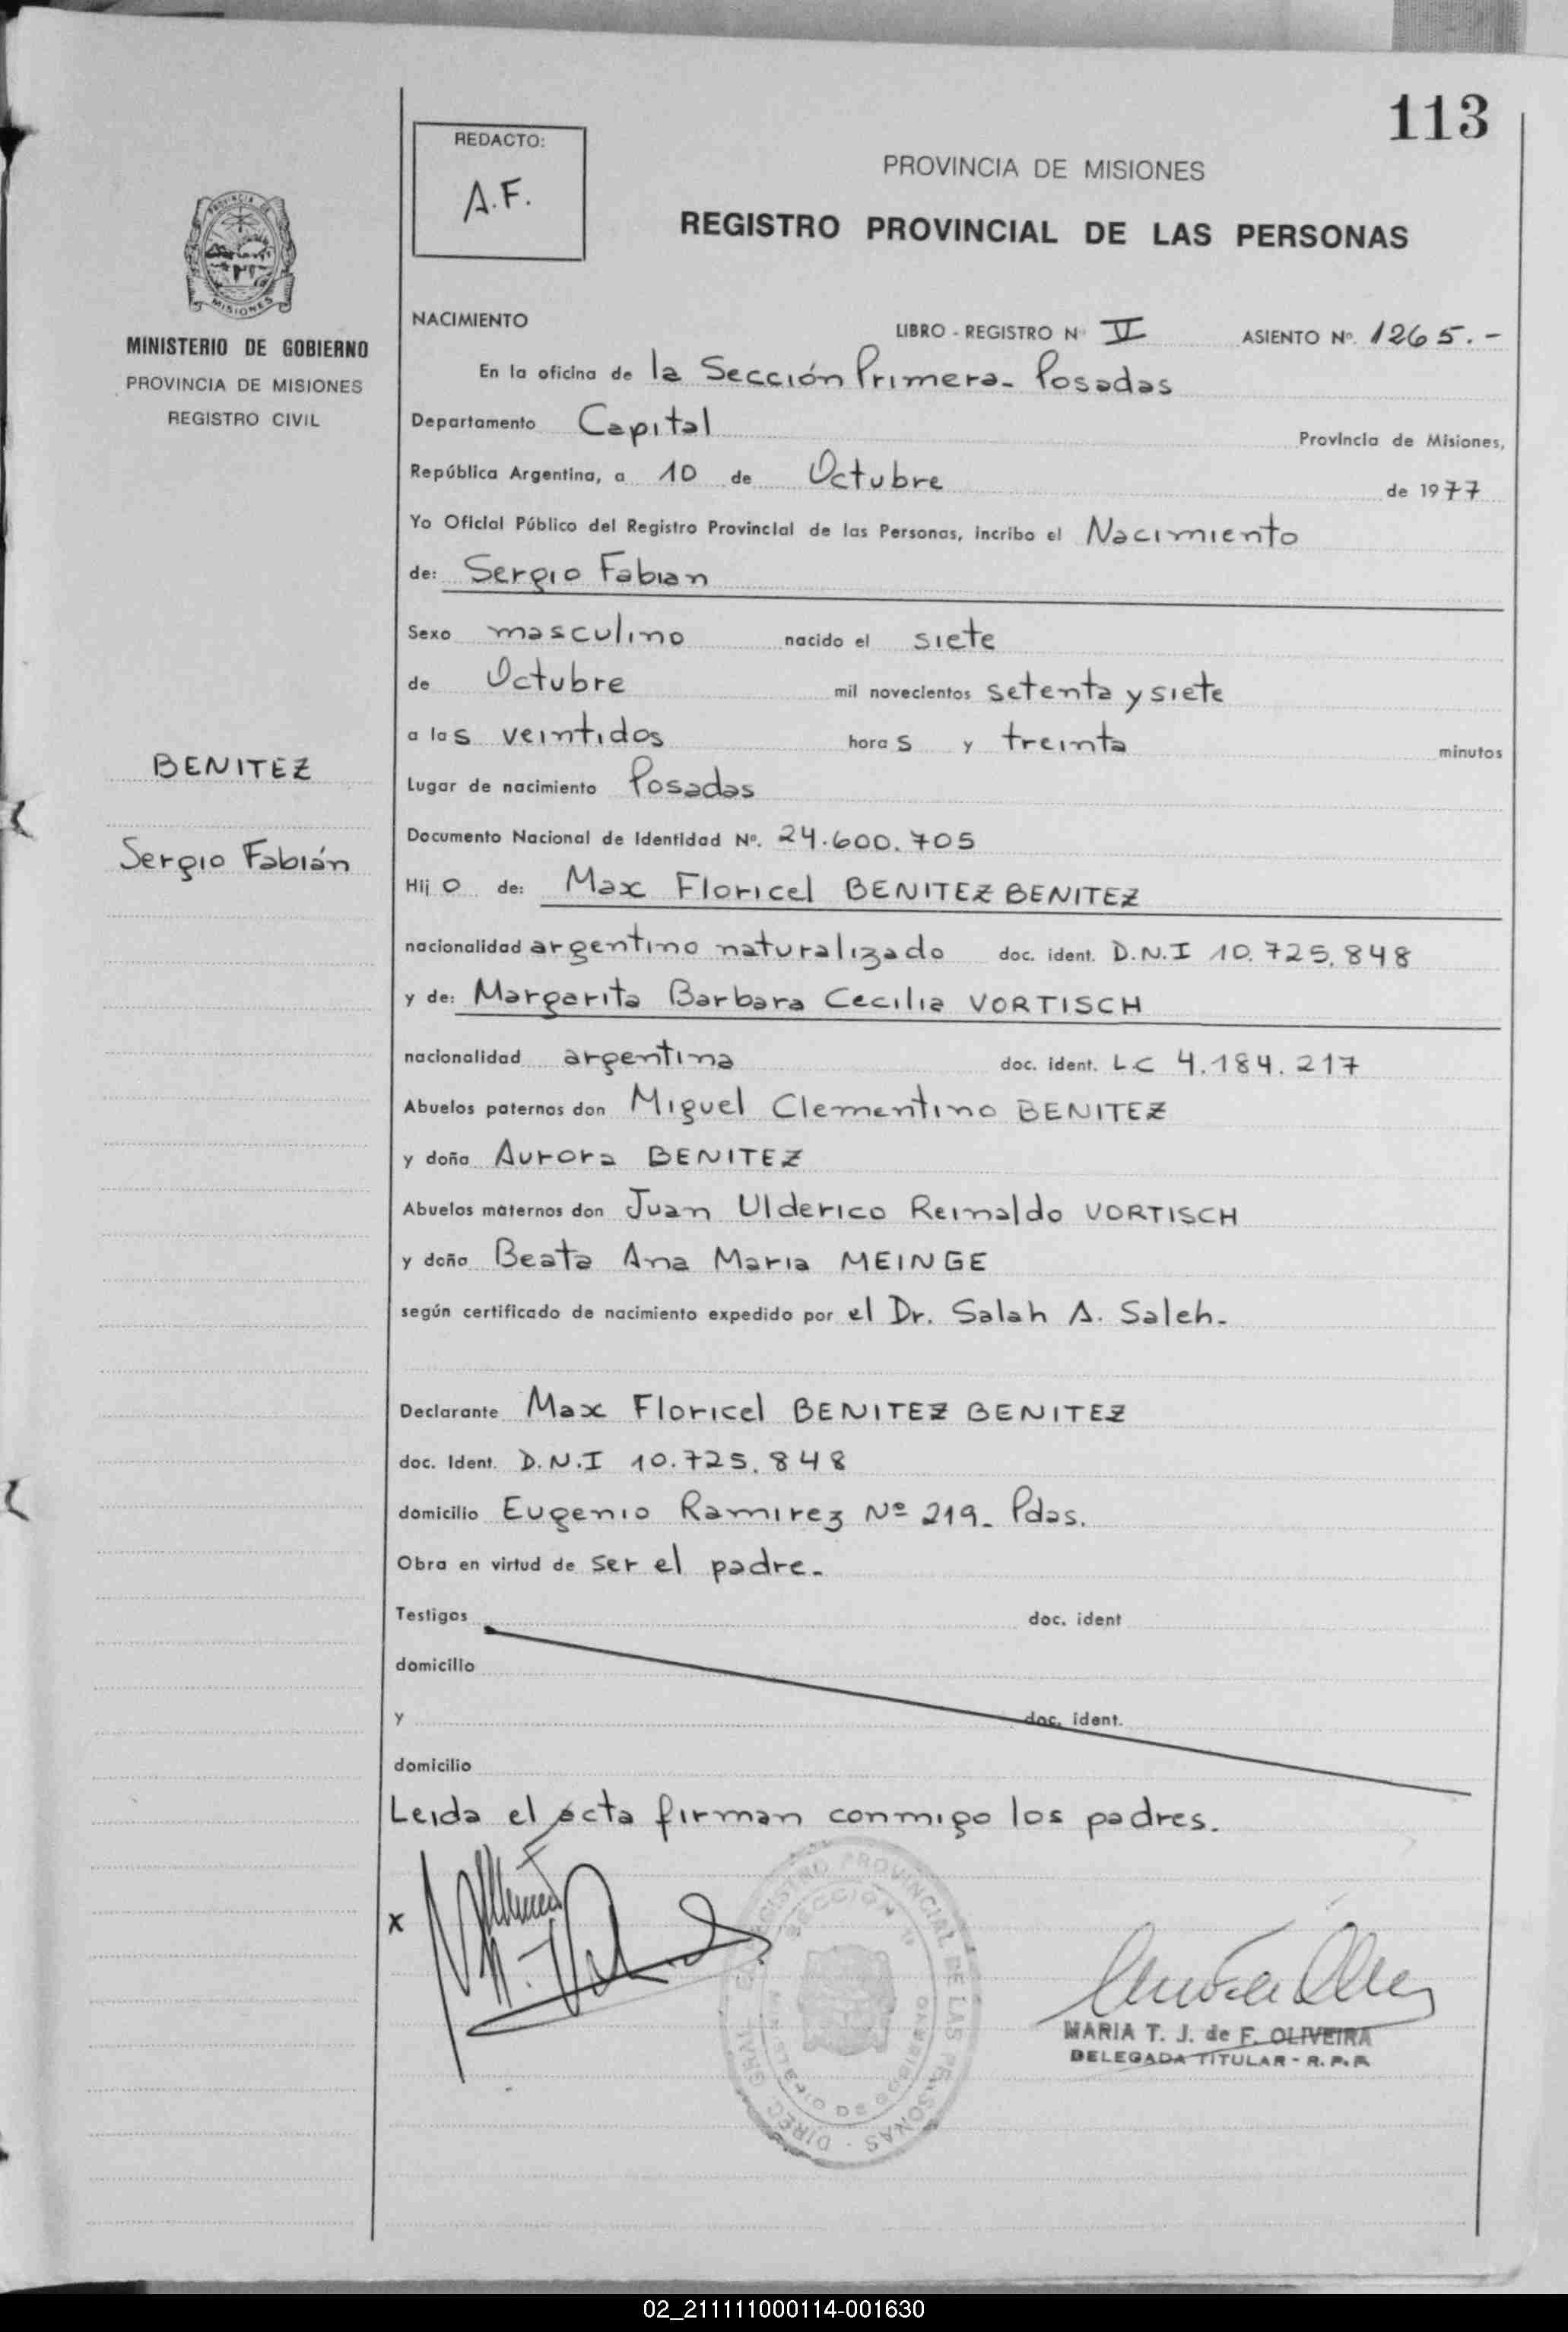 113
REDACTO:
A.F.
PROVINCIA DE MISIONES
REGISTRO PROVINCIAL DE LAS PERSONAS
PROVINCIA DE
MISIONES
MINISTERIO DE GOBIERNO
PROVINCIA DE MISIONES
REGISTRO CIVIL
BENITEZ
Sergio Fabián
NACIMIENTO LIBRO - REGISTRO Nº V ASIENTO Nº. 1265.-
En la oficina de la Sección Primera- Posadas
Departamento Capital Provincia de Misiones,
República Argentina, a 10 de Octubre de 1977
Yo Oficial Público del Registro Provincial de las Personas, incribo el Nacimiento
de: Sergio Fabian
Sexo masculino nacido el siete
de Octubre mil novecientos setenta y siete
a las veintidos horas y treinta minutos
Lugar de nacimiento Posadas
Documento Nacional de Identidad Nº. 24.600.705
Hijo de: Max Floricel BENITEZ BENITEZ
nacionalidad argentino naturalizado doc. ident. D.N.I 10.725.848
y de: Margarita Barbara Cecilia VORTISCH
nacionalidad argentina doc. ident. LC 4.184.217
Abuelos paternos don Miguel Clementino BENITEZ
y doña Aurora BENITEZ
Abuelos maternos don Juan Ulderico Reinaldo VORTISCH
y doña Beata Ana Maria MEINGE
según certificado de nacimiento expedido por el Dr. Salah A. Saleh.
Declarante Max Floricel BENITEZ BENITEZ
doc. Ident. D.N.I 10.725.848
domicilio Eugenio Ramirez Nº 219- Pdas.
Obra en virtud de ser el padre.
Testigos doc. ident
domicilio
y doc. ident.
domicilio
Leida el acta firman conmigo los padres.
x
DIREC. GRAL. REGISTRO PROVINCIAL DE LAS PERSONAS
SECCION 1a
MINISTERIO DE GOBIERNO
MARIA T. J. de F. OLIVEIRA
DELEGADA TITULAR - R. P. P.
02_211111000114-001630